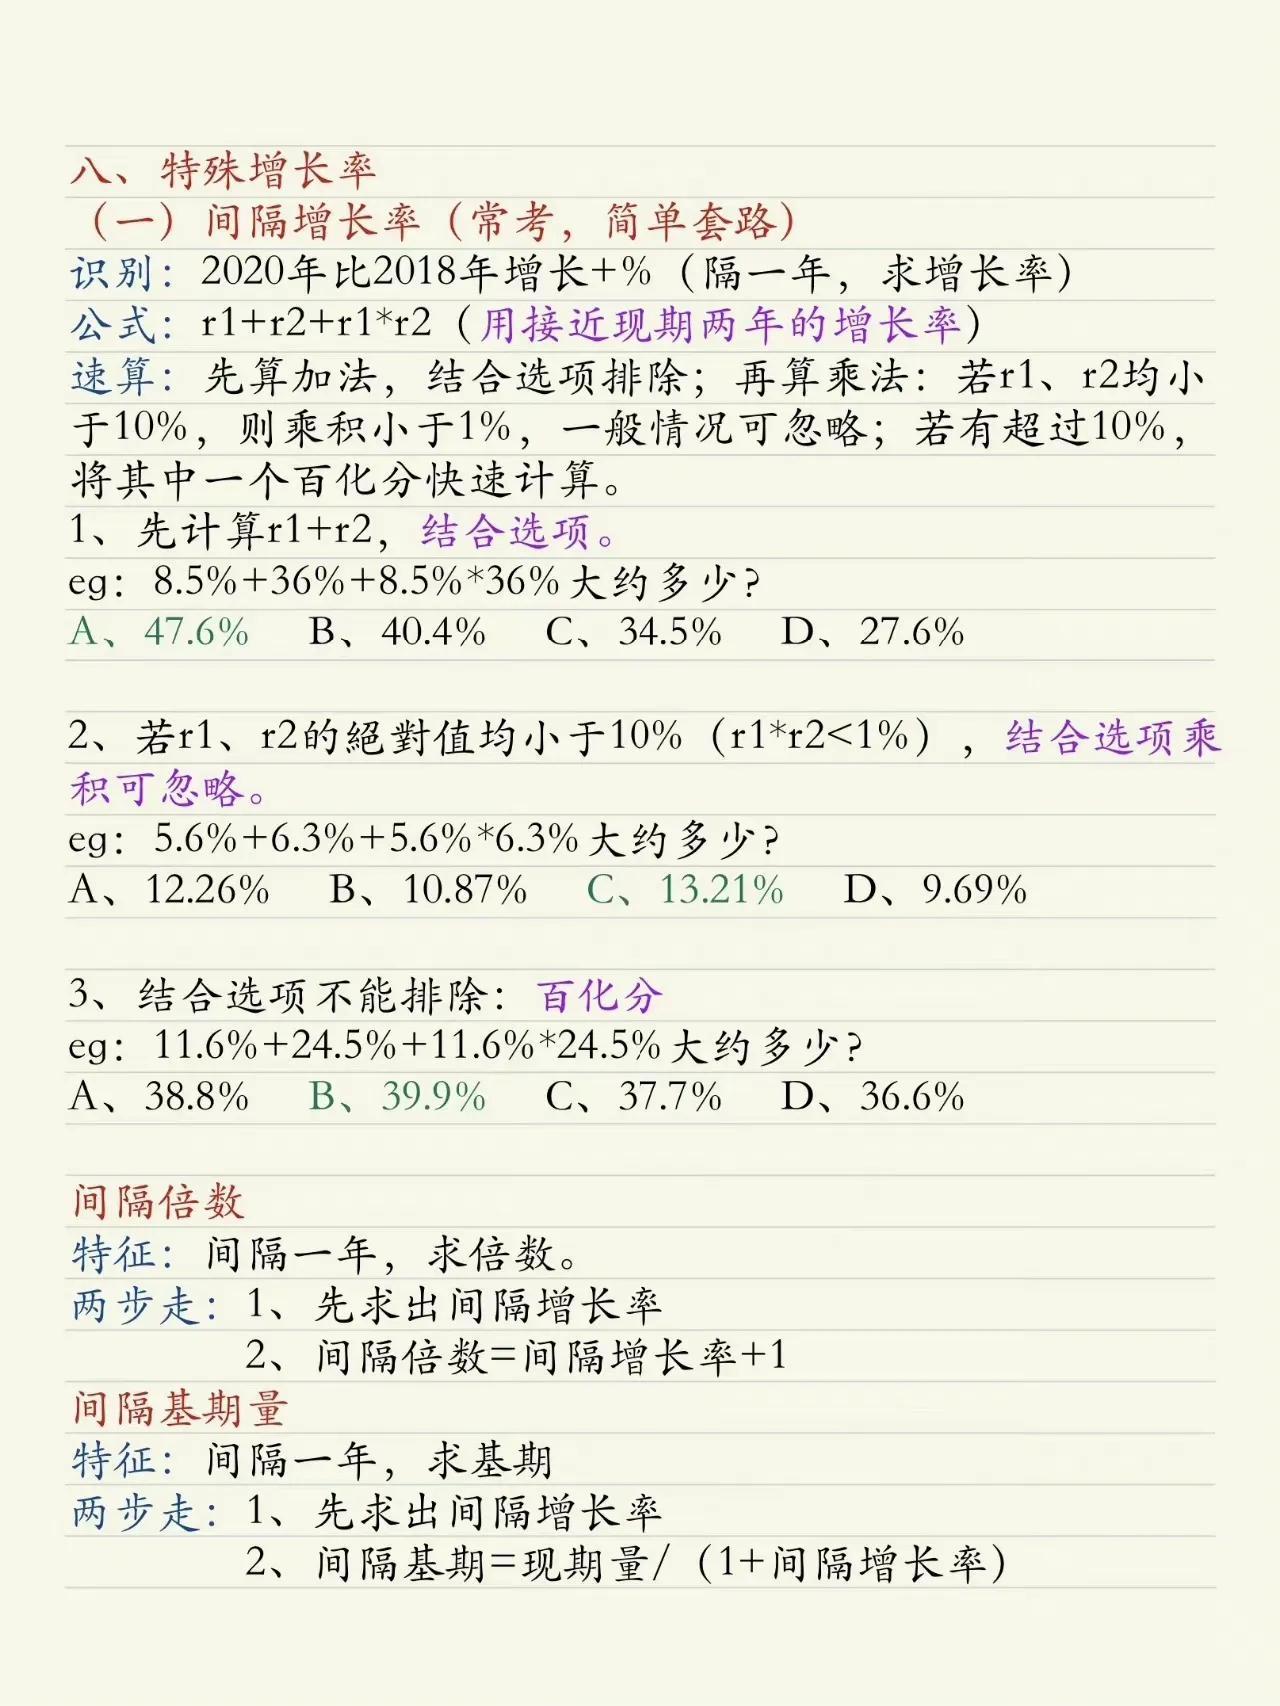 八、特殊增长率
（一）间隔增长率（常考，简单套路）
识别：2020年比2018年增长+%（隔一年，求增长率）
公式：r1+r2+r1*r2（用接近现期两年的增长率）
速算：先算加法，结合选项排除；再算乘法：若r1、r2均小
于10%，则乘积小于1%，一般情况可忽略；若有超过10%，
将其中一个百化分快速计算。
1、先计算r1+r2，结合选项。
eg：8.5%+36%+8.5%*36%大约多少？
A、47.6% B、40.4% C、34.5% D、27.6%
2、若r1、r2的絕對值均小于10%（r1*r2<1%），结合选项乘
积可忽略。
eg：5.6%+6.3%+5.6%*6.3%大约多少？
A、12.26% B、10.87% C、13.21% D、9.69%
3、结合选项不能排除：百化分
eg：11.6%+24.5%+11.6%*24.5%大约多少？
A、38.8% B、39.9% C、37.7% D、36.6%
间隔倍数
特征：间隔一年，求倍数。
两步走：1、先求出间隔增长率
2、间隔倍数=间隔增长率+1
间隔基期量
特征：间隔一年，求基期
两步走：1、先求出间隔增长率
2、间隔基期=现期量/（1+间隔增长率）